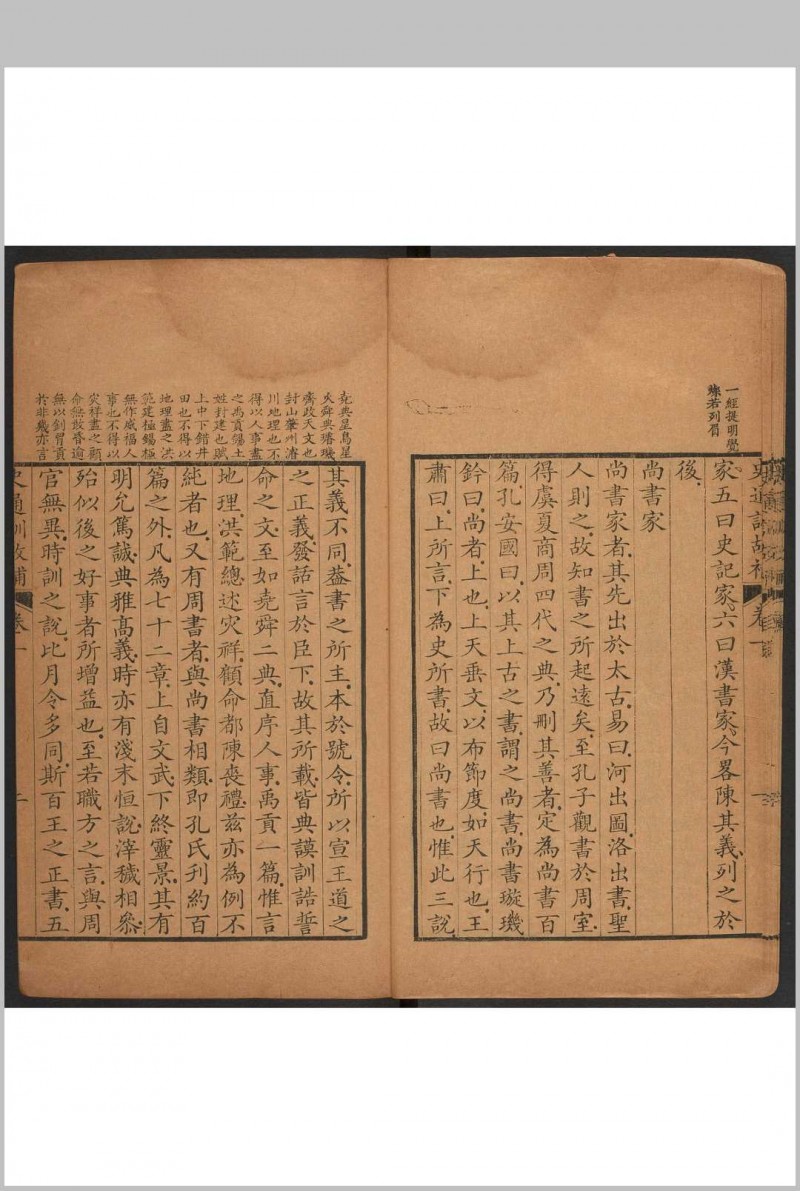 一經提明覺
爍若列眉
史通訓故補
卷一
家五曰史記家六曰漢書家今畧陳其義列之於
後
尚書家
尚書家者其先出於太古易曰河出圖洛出書聖
人則之故知書之所起遠矣至孔子觀書於周室
得虞夏商周四代之典乃刪其善者定為尚書百
篇孔安國曰以其上古之書謂之尚書尚書璇璣
鈐曰尚者上也上天垂文以布節度如天行也王
肅曰上所言下為史所書故曰尚書也惟此三說
堯典星鳥星
火舜典璿璣
齊政天文也
封山肇州濬
川地理也不
得以人事盡
之禹貢錫土
姓封建也賦
上中下錯井
田也不得以
地理盡之洪
範建極錫極
無作威福人
事也不得以
灾祥盡之顧
命無敢昏逾
無以釗冒貢
於非幾亦言
其義不同葢書之所主本於號令所以宣王道之
之正義發話言於臣下故其所載皆典謨訓誥誓
命之文至如堯舜二典直序人事禹貢一篇惟言
地理洪範總述灾祥顧命都陳喪禮兹亦為例不
純者也又有周書者與尚書相類即孔氏刋約百
篇之外凡為七十二章上自文武下終靈景其有
明允篤誠典雅高義時亦有淺末恒說滓穢相叅
殆似後之好事者所增益也至若職方之言與周
官無異時訓之說比月令多同斯百王之正書五
史通訓故補
卷一
二